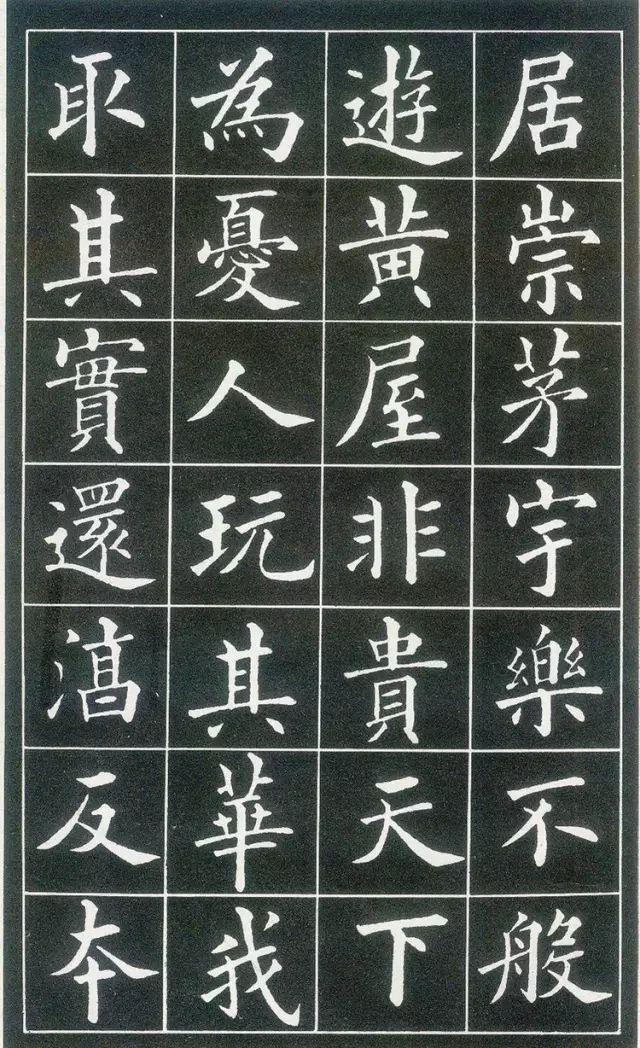 居崇茅宇樂不般
遊黄屋非貴天下
為憂人玩其華我
取其實還湻反夲